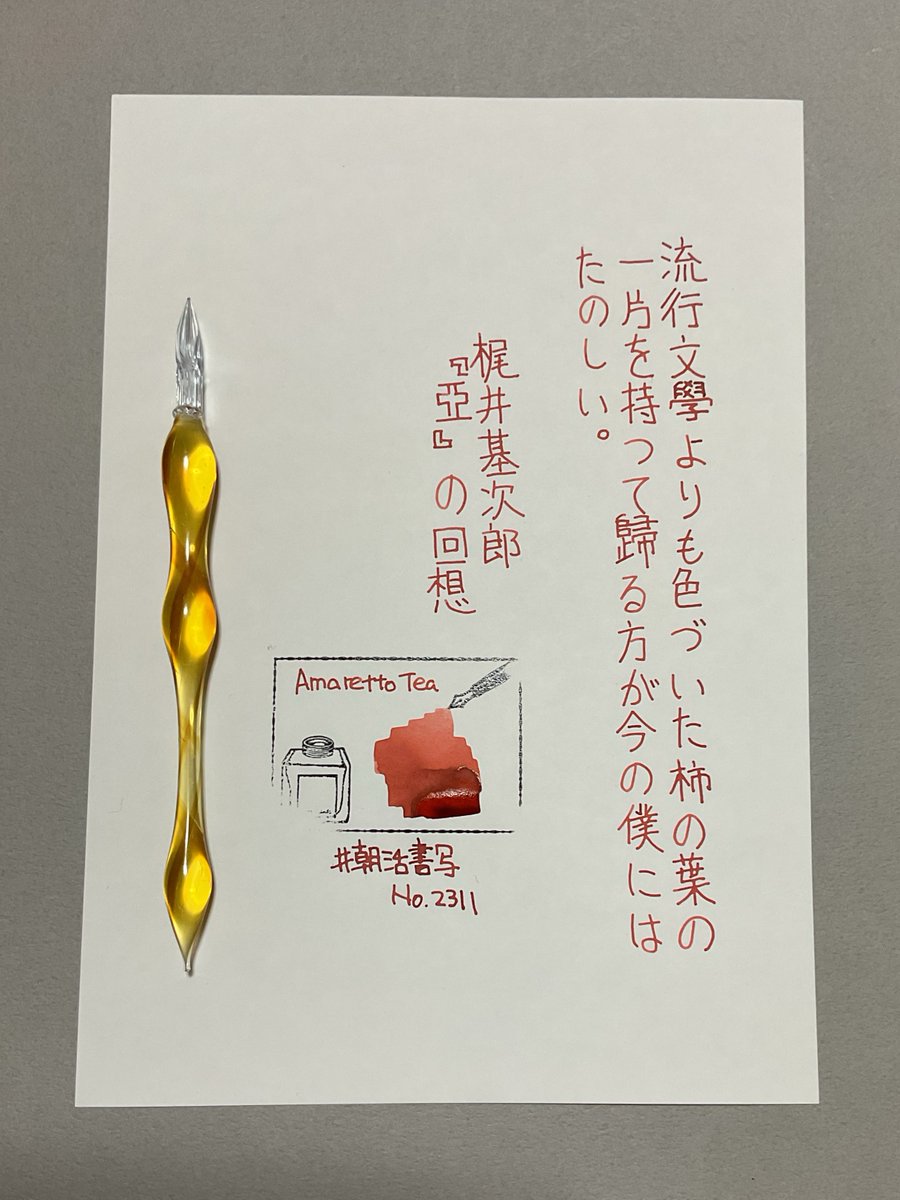 流行文學よりも色づいた柿の葉の
一片を持つて歸る方が今の僕には
たのしい。
梶井基次郎
『亞』の回想
Amaretto Tea
#朝活書写
No.2311